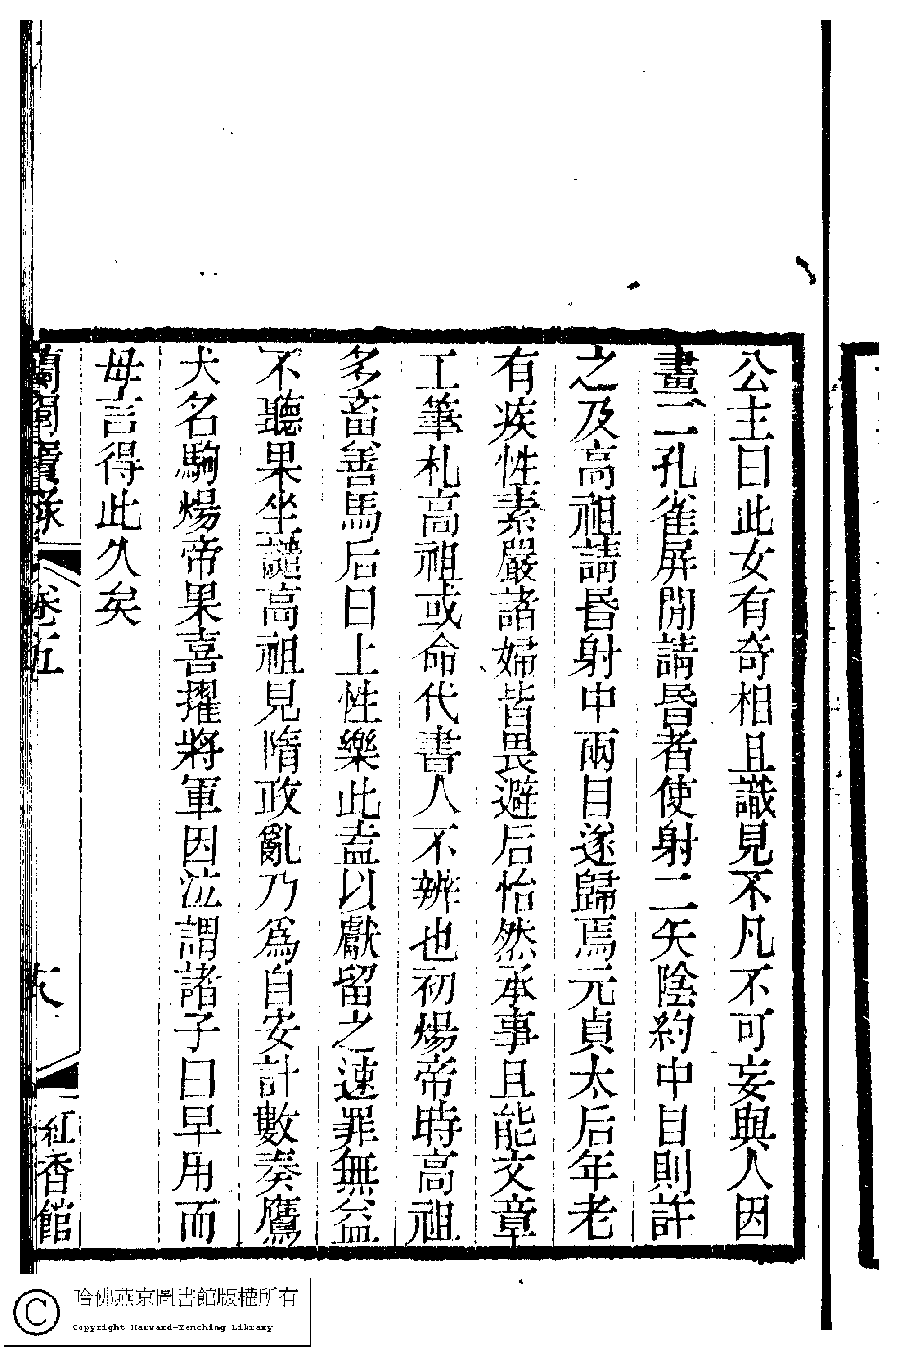 公主曰此女有奇相且識見不凡不可妄與人因
畫二孔雀屏間請昏者使射二矢陰約中目則許
之及高祖請昏射中兩目遂歸焉元貞太后年老
有疾性素嚴諸婦皆畏避后怡然承事且能文章
工筆札高祖或命代書人不辨也初煬帝時高祖
多畜善馬后曰上性樂此盍以獻留之速罪無益
不聽果坐譴高祖見隋政亂乃爲自安計數奏鷹
犬名駒煬帝果喜擢將軍因泣謂諸子曰早用而
母言得此久矣
蘭閨寶錄 卷五
紅香館
哈佛燕京圖書館版權所有
Copyright Harvard-Yenching Library